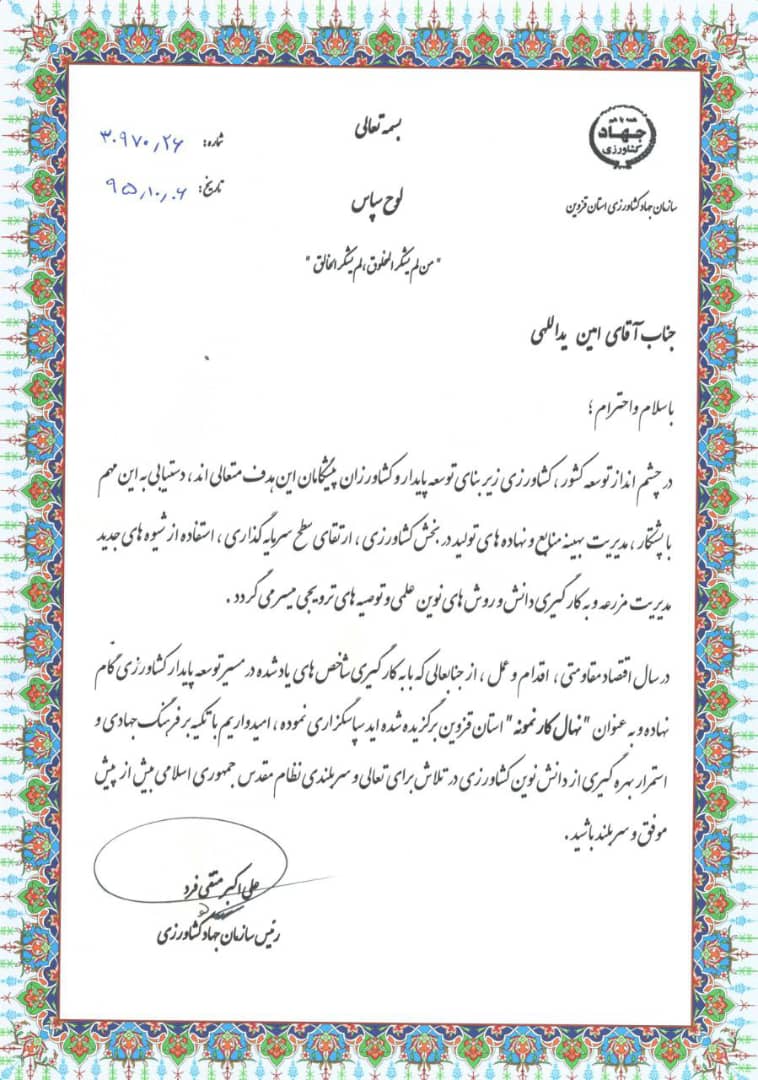 بسمه تعالی
همه با هم
جهاد
کشاورزی
شماره: ۳۰۹۷۰٫۲۶
تاریخ: ۹۵٫۱۰٫۰۶
سازمان جهاد کشاورزی استان قزوین
لوح سپاس
"من لم یشکر المخلوق، لم یشکر الخالق"
جناب آقای امین یداللهی
با سلام و احترام ؛
در چشم انداز توسعه کشور ، کشاورزی زیر بنای توسعه پایدار و کشاورزان پیشگامان این هدف متعالی اند ، دستیابی به این مهم
با پشتکار ، مدیریت بهینه منابع و نهاده های تولید در بخش کشاورزی ، ارتقای سطح سرمایه گذاری ، استفاده از شیوه های جدید
مدیریت مزرعه و به کارگیری دانش و روش های نوین علمی و توصیه های ترویجی میسر می گردد .
در سال اقتصاد مقاومتی ، اقدام و عمل ، از جنابعالی که با به کارگیری شاخص های یاد شده در مسیر توسعه پایدار کشاورزی گام
نهاده و به عنوان "نهال کار نمونه" استان قزوین برگزیده شده اید سپاسگزاری نموده ، امیدواریم با تکیه بر فرهنگ جهادی و
استمرار بهره گیری از دانش نوین کشاورزی در تلاش برای تعالی و سربلندی نظام مقدس جمهوری اسلامی بیش از پیش
موفق و سربلند باشید .
علی اکبر متقی فرد
رئیس سازمان جهاد کشاورزی